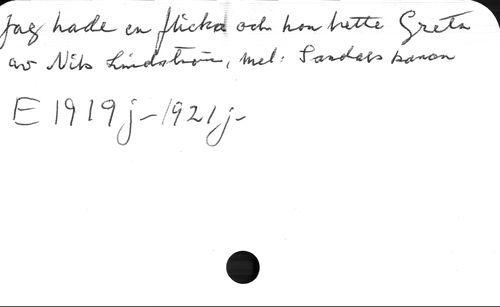 Jag hade en flicka och hon hette Greta
av Nils Lindström, mel: Sandals kanon
E 1919j-1921j-